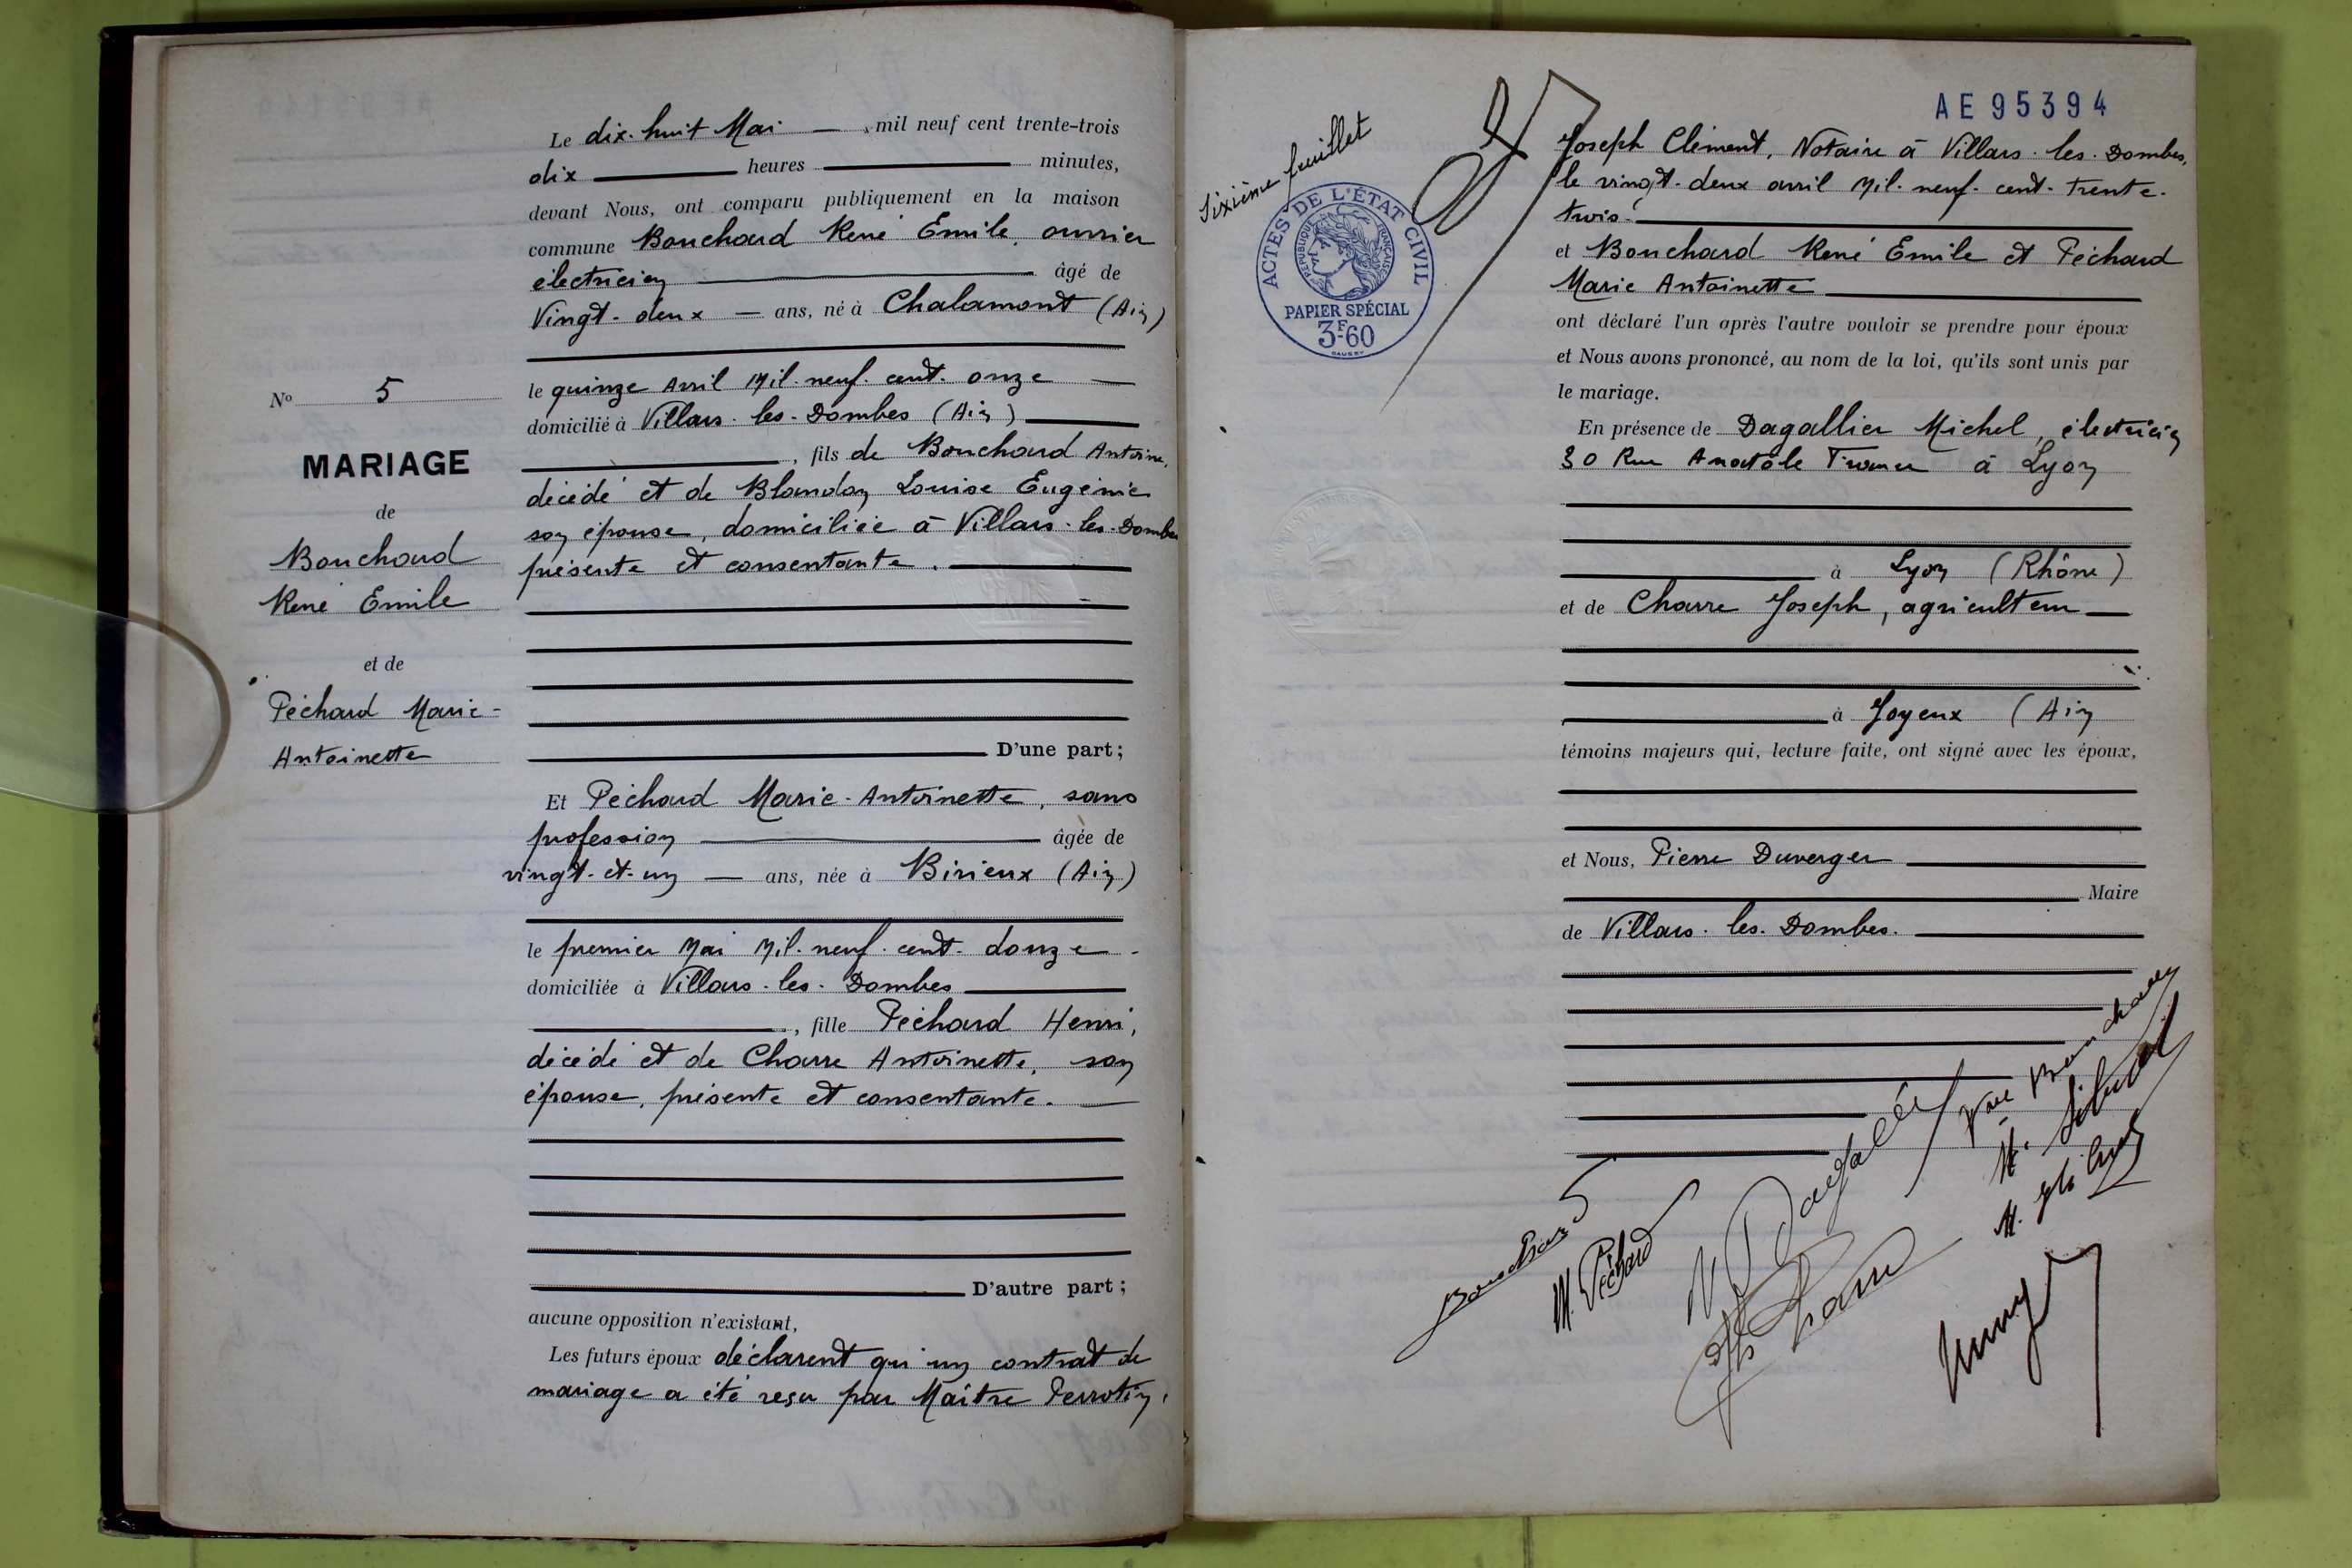 Le dix-huit Mai mil neuf cent trente-trois
dix heures minutes,
devant Nous, ont comparu publiquement en la maison
commune Bouchard René Emile, ouvrier
électricien âgé de
Vingt-deux ans, né à Chalamont (Ain)
le quinze Avril Mil-neuf-cent-onze
domicilié à Villars-les-Dombes (Ain)
, fils de Bouchard Antoine,
décédé et de Blandon Louise Eugénie
son épouse, domiciliée à Villars-les-Dombes
présente et consentante.
D'une part;
Nº 5
MARIAGE
de
Bouchard
René Emile
et de
Péchard Marie-
Antoinette
Et Péchard Marie-Antoinette, sans
profession âgée de
vingt-et-un ans, née à Birieux (Ain)
le premier Mai Mil-neuf-cent-douze
domiciliée à Villars-les-Dombes
, fille Péchard Henri,
décédé et de Charre Antoinette, son
épouse, présente et consentante.
D'autre part;
aucune opposition n'existant,
Les futurs époux déclarent qu'un contrat de
mariage a été reçu par Maître Perrotin,
Sixième feuillet
ACTES DE L'ÉTAT CIVIL
RÉPUBLIQUE FRANÇAISE
PAPIER SPÉCIAL
3F60
AE 95394
Joseph Clément, Notaire à Villars-les-Dombes,
le vingt-deux avril Mil-neuf-cent-trente-
trois.
et Bouchard René Emile et Péchard
Marie Antoinette
ont déclaré l'un après l'autre vouloir se prendre pour époux
et Nous avons prononcé, au nom de la loi, qu'ils sont unis par
le mariage.
En présence de Dagallier Michel, électricien
30 Rue Anatole France à Lyon
à Lyon (Rhône)
et de Charre Joseph, agriculteur
à Joyeux (Ain
témoins majeurs qui, lecture faite, ont signé avec les époux,
et Nous, Pierre Duverger
Maire
de Villars-les-Dombes.
Bouchard
M. Péchard
M Dagallier
Charre
Vve Bouchard